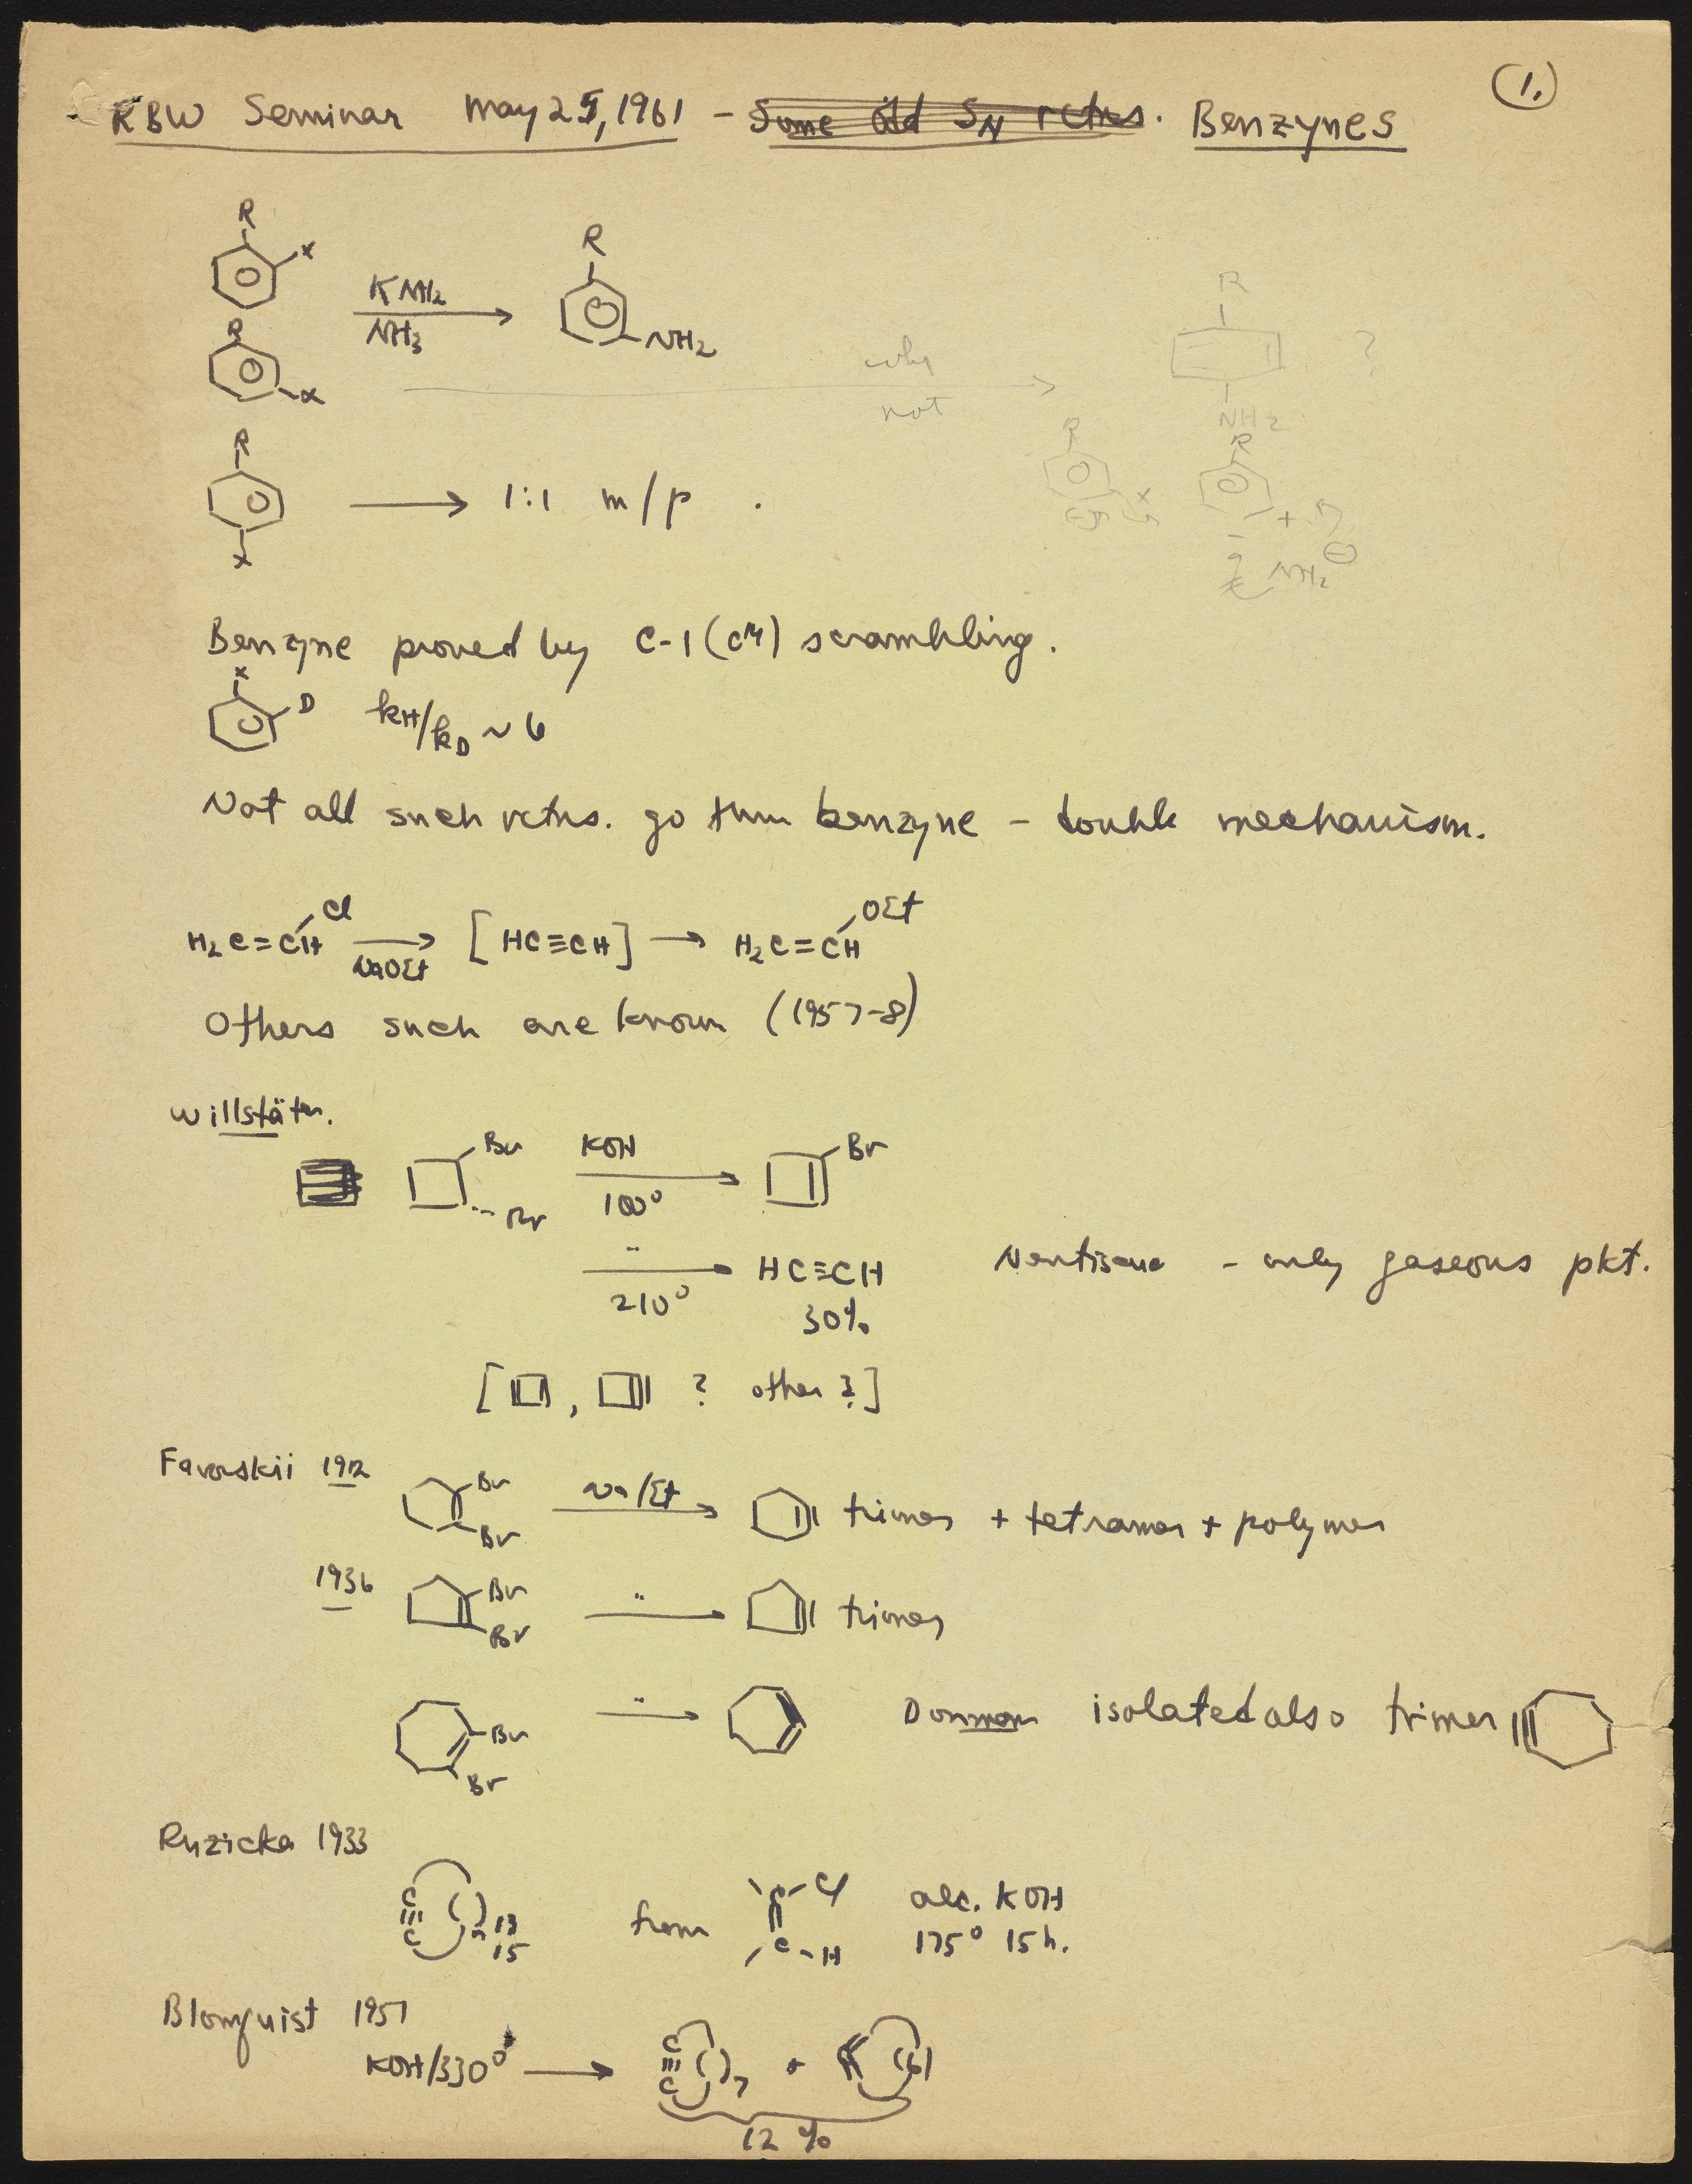 1.
RBW Seminar May 25, 1961 - Some Old SN rctns. Benzynes
R
X
KNH2
NH3
R
NH2
R
X
why
not
R
NH2
?
R
X
1:1 m/p .
R
X
R
+
NH2 ⊖
Benzyne proved by C-1 (C14) scrambling.
X
D kH/kD ~ 6
Not all such rctns. go thru benzyne - double mechanism.
H2C=CH Cl NaOEt [HC≡CH] → H2C=CH OEt
Others such are known (1957-8)
Willstäter.
Br
Br
KOH
100°
Br
"
210°
HC≡CH
30%
- only gaseous pkt.
[ , ? other ? ]
Favorskii 1912
Br
Br
Na/Et
trimer + tetramer + polymer
1936
Br
Br
"
trimer
Br
Br
"
isolated also trimer
Ruzicka 1933
C
≡
C
( )n 13
15
from
C-Cl
C-H
alc. KOH
175° 15h.
Blomquist 1951
KOH/330° →
C
≡
C
( )7 + (6)
12%